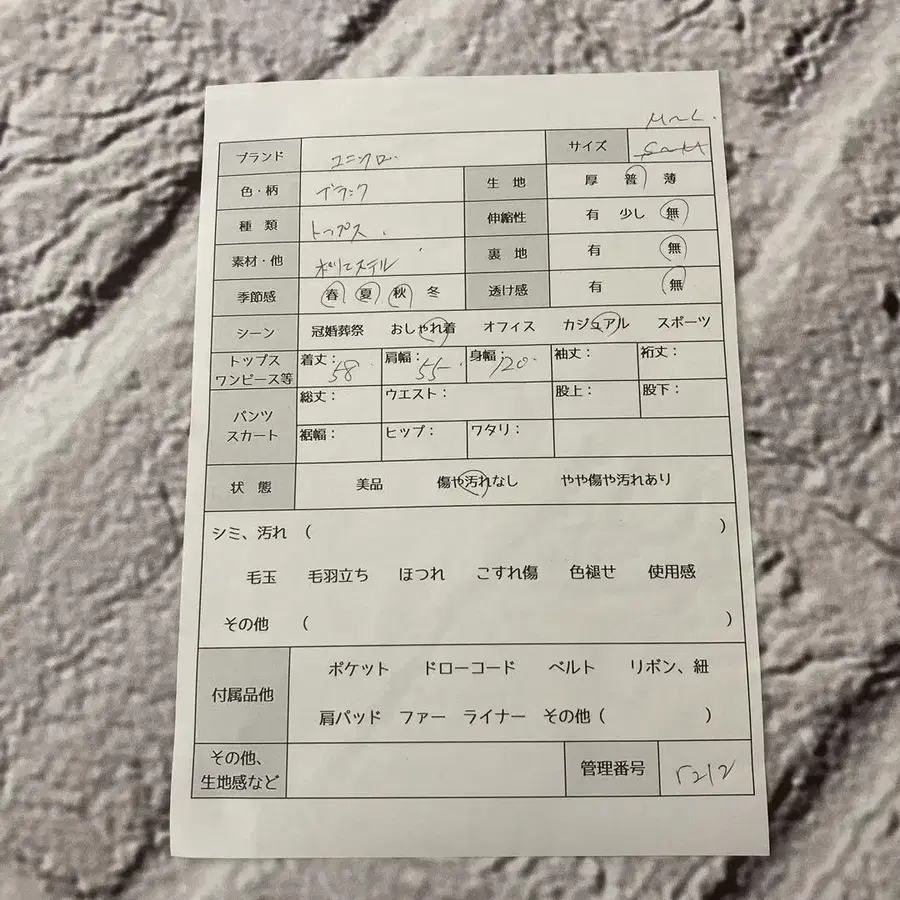 M〜L.
ブランド ユニクロ. サイズ S〜M
色・柄 ブラック 生地 厚 普 薄
種類 トップス. 伸縮性 有 少し 無
素材・他 ポリエステル 裏地 有 無
季節感 春 夏 秋 冬 透け感 有 無
シーン 冠婚葬祭 おしゃれ着 オフィス カジュアル スポーツ
トップス ワンピース等 着丈: 58. 肩幅: 55 身幅: 120. 袖丈: 裄丈:
パンツ スカート 総丈: ウエスト: 股上: 股下:
裾幅: ヒップ: ワタリ:
状態 美品 傷や汚れなし やや傷や汚れあり
シミ、汚れ ( )
毛玉 毛羽立ち ほつれ こすれ傷 色褪せ 使用感
その他 ( )
付属品他 ポケット ドローコード ベルト リボン、紐
肩パッド ファー ライナー その他 ( )
その他、
生地感など 管理番号 5212